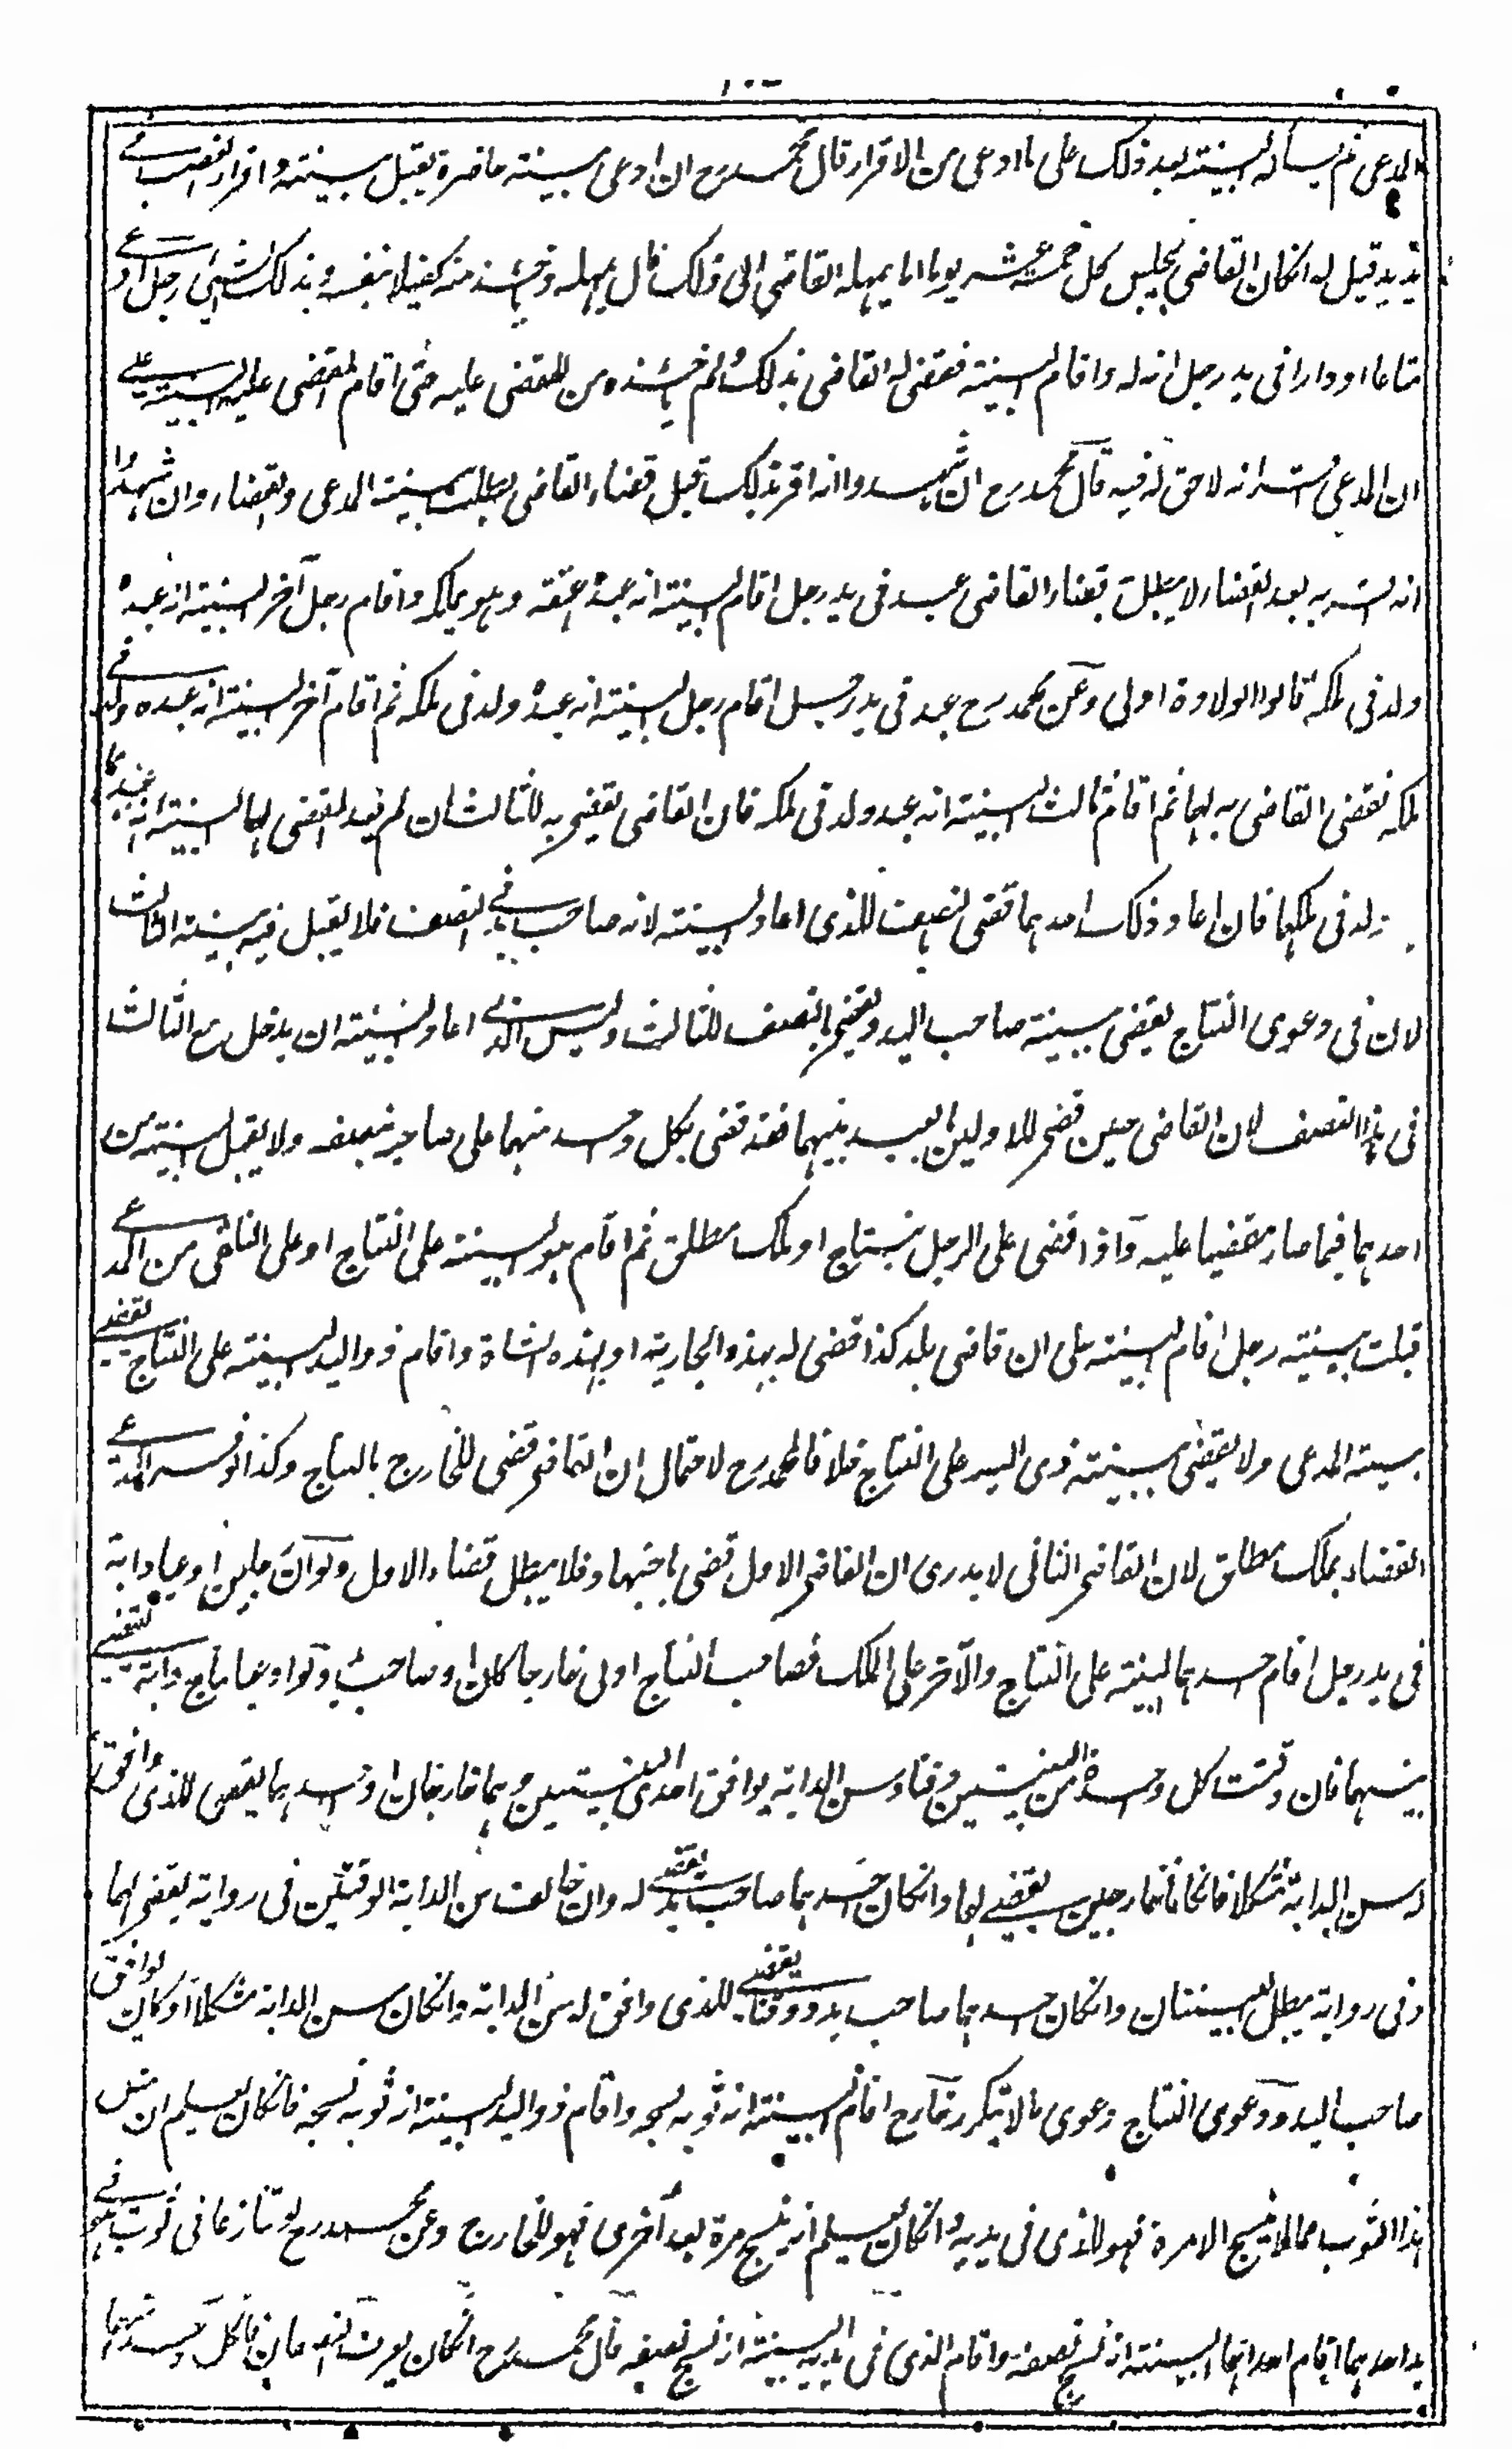 المدعى ثم يسأله البينة بعد ذلك على ما ادعى من الاقرار قال محمد رح ان ادعى بينة حاضرة يقبل بينته واقرار الغصب فى
يد يد قيل له ان كان القاضى يجلس كل خمسة عشر يوما اما يمهله القاضى الى ذلك قال يمهله وياخذ منه كفيلا بنفسه وبذلك الشئ رجل ادعى
متاعا او دارا فى يد رجل انه له واقام البينة فقضى له القاضى بذلك ولم ياخذه من المقضى عليه حتى اقام المقضى عليه البينة على
ان المدعى اقر انه لا حق له فيه قال محمد رح ان شهدوا انه اقر بذلك قبل قضاء القاضى بطلت بينة المدعى والقضاء وان شهدوا
انه اقر به بعد القضاء لا يبطل قضاء القاضى عبد فى يد رجل اقام البينة انه عبده اعتقه وهو يملكه واقام رجل آخر البينة انه عبده
ولد فى ملكه قالوا الولادة اولى وعن محمد رح عبد فى يد رجل اقام رجل البينة انه عبده ولد فى ملكه ثم اقام آخر البينة انه عبده ولد فى
ملكه فقضى القاضى به لهما ثم اقام ثالث البينة انه عبده ولد فى ملكه فان القاضى يقضى به للثالث ان لم يعد المقضى لهما البينة انه عبدهما
ولد فى ملكهما فان اعاد ذلك احدهما قضى بنصف للذى اعاد البينة لانه صاحب يد فى النصف فلا يقبل فيه بينة الثالث
لان فى دعوى النتاج يقضى ببينة صاحب اليد ويقضى بالنصف للثالث وليس للذى اعاد البينة ان يدخل مع الثالث
فى هذا النصف لان القاضى حين قضى للاولين بالعبد بينهما فقد قضى لكل واحد منهما على صاحبه بنصفه ولا يقبل البينة من
احدهما فيما صار مقضيا عليه واذا قضى على الرجل بنتاج او ملك مطلق ثم اقام هو البينة على النتاج او على التلقى من المدعى
قبلت بينته رجل اقام البينة على ان قاضى بلد كذا قضى له بهذه الجارية او بهذه الشاة واقام ذو اليد البينة على النتاج يقضى
ببينة المدعى ولا يقضى ببينة ذى اليد على النتاج خلافا لمحمد رح لاحتمال ان القاضى قضى للخارج بالنتاج وكذا لو فسر المدعى
القضاء بملك مطلق لان القاضى الثانى لا يدرى ان القاضى الاول قضى باجتهاد فلا يبطل قضاء الاول ولو ان رجلين ادعيا دابة
فى يد رجل اقام احدهما البينة على النتاج والآخر على الملك فصاحب النتاج اولى خارجا كان او صاحب يد ولو ادعيا نتاج دابة يقضى
بينهما فان وقتت كل واحدة من البينتين وقتا وسن الدابة يوافق احدى البينتين وهما خارجان او احدهما يقضى للذى وافق
وسن الدابة مشكلا فان كانا خارجين يقضى لهما وان كان احدهما صاحب يد يقضى له وان خالف سن الدابة الوقتين فى رواية يقضى لهما
وفى رواية يبطل البينتان وان كان احدهما صاحب يد ووقتا يقضى للذى وافق له سن الدابة وان كان سن الدابة مشكلا او كان يوافق
صاحب اليد ودعوى النتاج دعوى ما لا يتكرر خارج اقام البينة انه ثوبه نسجه واقام ذو اليد البينة انه ثوبه نسجه فان كان يعلم ان مثل
هذا الثوب مما لا ينسج الا مرة فهو للذى فى يديه وان كان يعلم انه ينسج مرة بعد اخرى فهو للخارج وعن محمد رح لو تنازعا فى ثوب هو فى
يد احدهما اقام احدهما البينة انه نسج نصفه واقام الذى فى يديه البينة انه نسج نصفه قال محمد رح ان كان يعرف النصفان فلكل واحد منهما